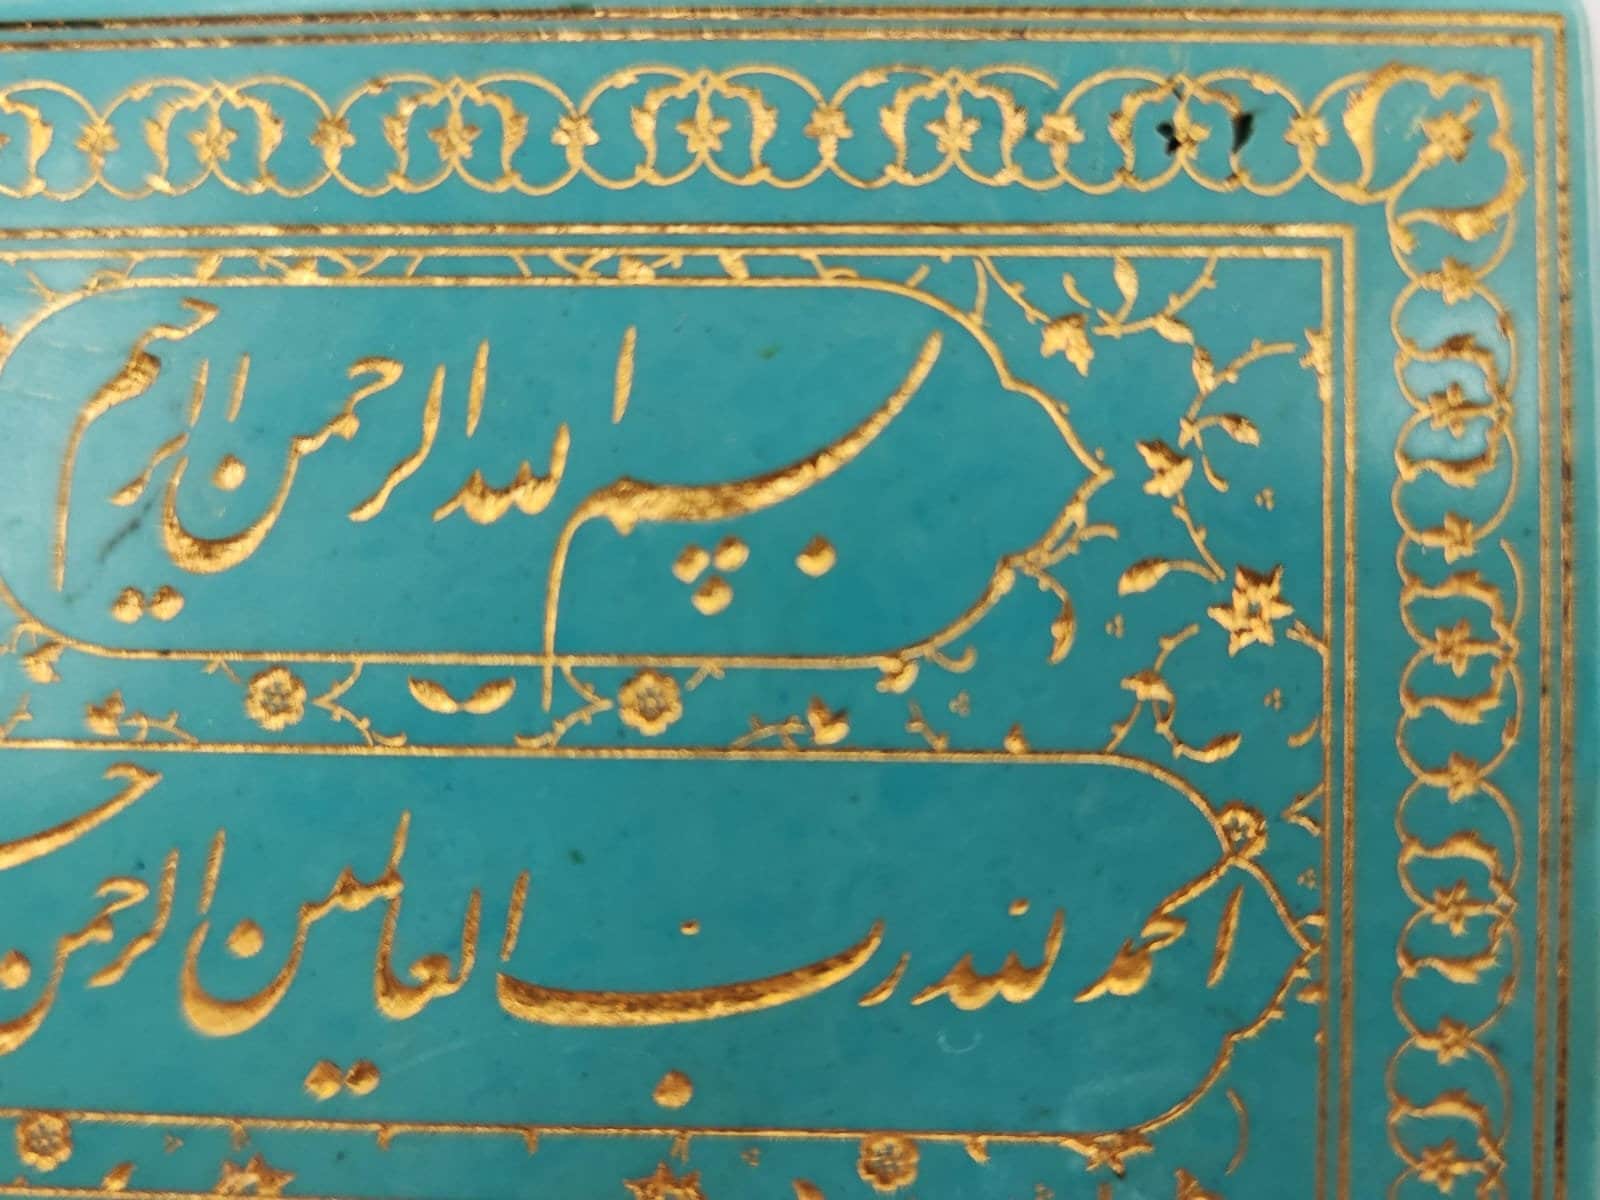 بسم الله الرحمن الرحیم
الحمد لله رب العالمین الرحمن